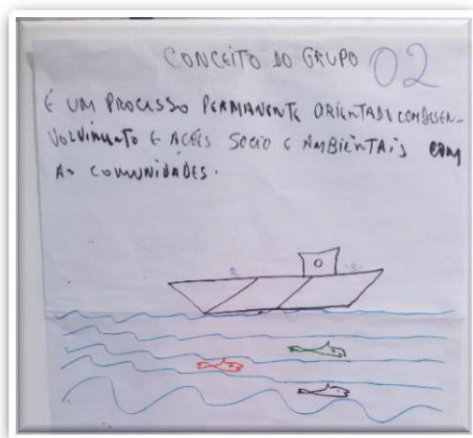 CONCEITO DO GRUPO 02
É UM PROCESSO PERMANENTE ORIENTADO COM DESEN-
VOLVIMENTO E AÇÕES SOCIO E AMBIENTAIS COM
AS COMUNIDADES.